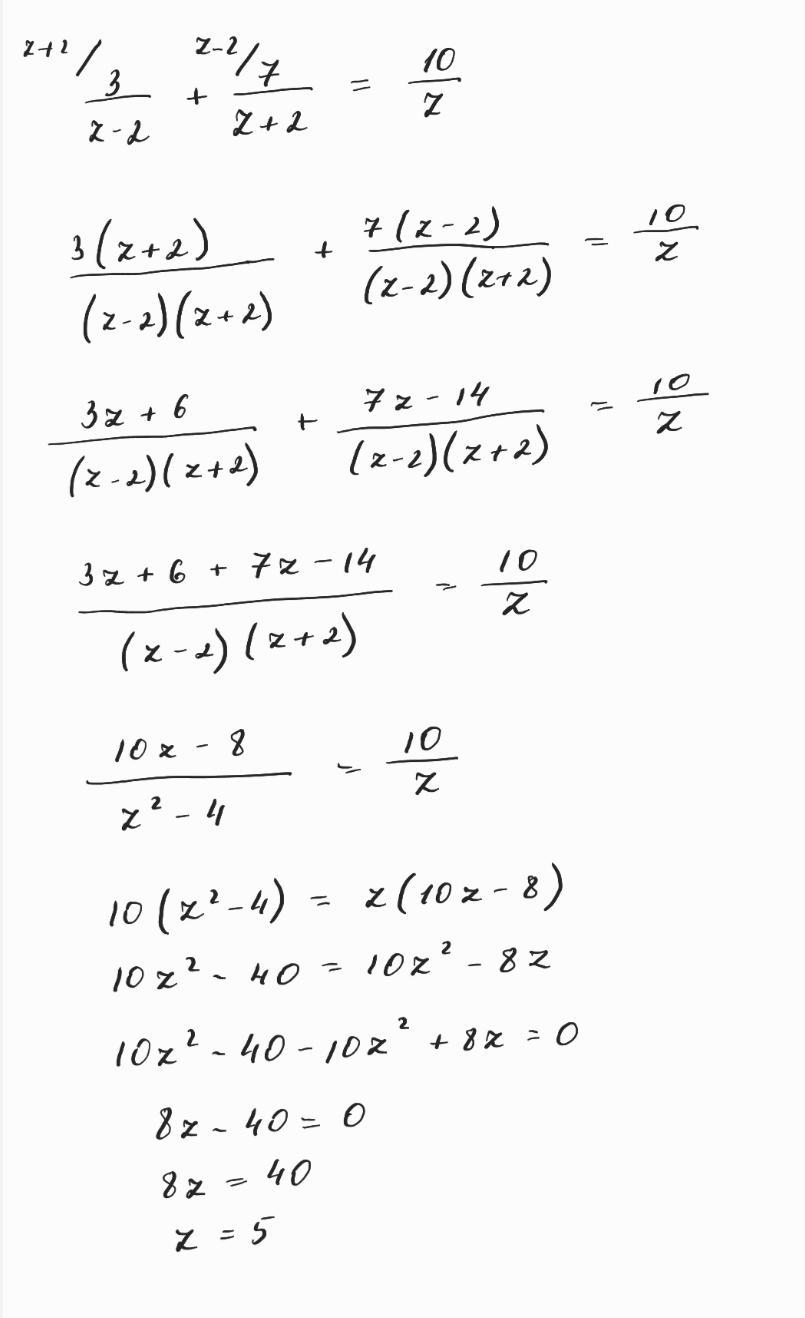 z+2/ 3/(z-2) + z-2/ 7/(z+2) = 10/z
3(z+2)/((z-2)(z+2)) + 7(z-2)/((z-2)(z+2)) = 10/z
(3z+6)/((z-2)(z+2)) + (7z-14)/((z-2)(z+2)) = 10/z
(3z+6+7z-14)/((z-2)(z+2)) = 10/z
(10z-8)/(z²-4) = 10/z
10(z²-4) = z(10z-8)
10z²-40 = 10z²-8z
10z²-40-10z²+8z=0
8z-40=0
8z=40
z=5